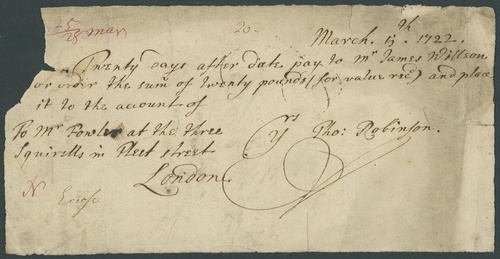 5
25 mar
20.
March. 15th. 1722.
Twenty days after date pay to Mr James Willson
or order the sum of twenty pounds (for value recd) and place
it to the account of
To Mr Fowler at the three
Squirells in Fleet street
London
Yrs Tho: Robinson.
N